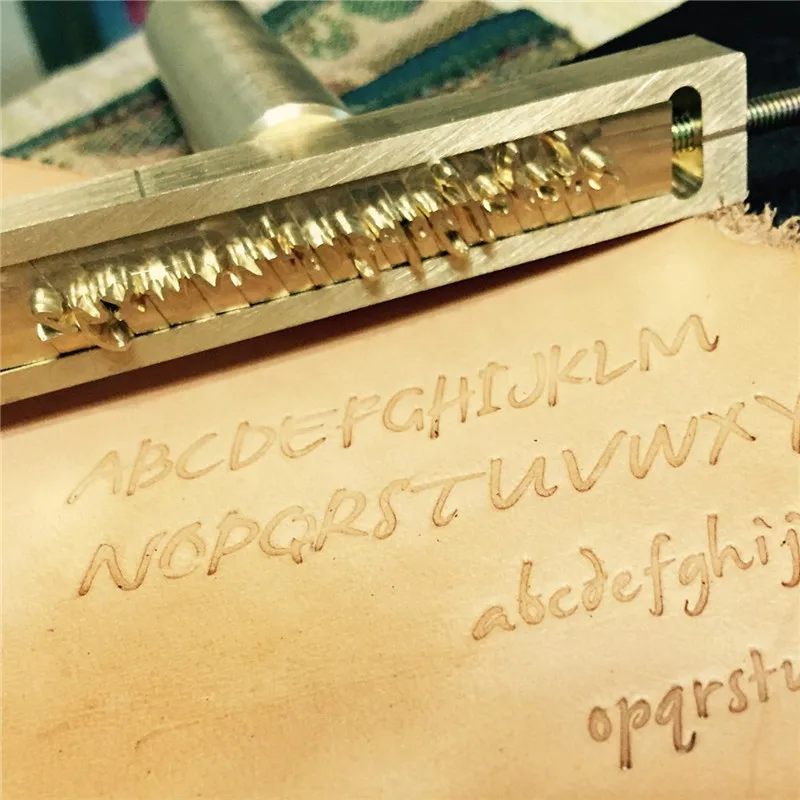 ABCDEFGHIJKLM
NOPQRSTUVWXY
abcdefghij
opqrstu